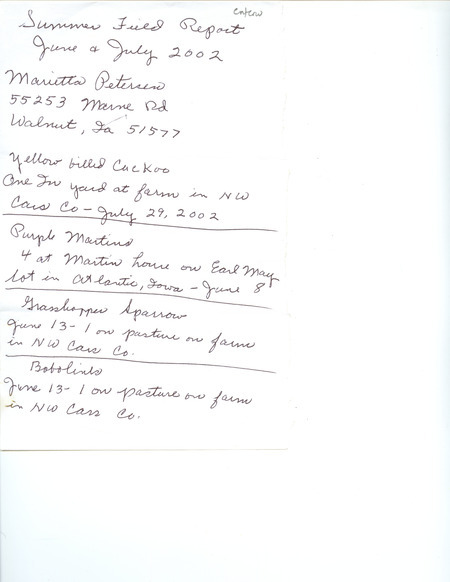 Summer Field Report
June & July 2002
Marietta Petersen
55253 Marne Rd
Walnut, Ia 51577
Yellow billed Cuckoo
One In yard at farm in NW
Cass Co - July 29, 2002
Purple Martins
4 at Martin house on Earl May
lot in Atlantic, Iowa - June 8
Grasshopper Sparrow
June 13 - 1 on pasture on farm
in NW Cass Co.
Bobolinks
June 13 - 1 on pasture on farm
in NW Cass Co.